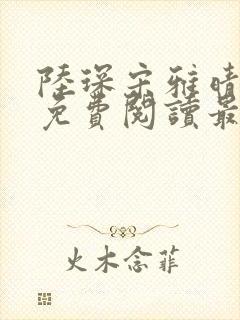 陸琛宋雅晴
免費閱讀最
火木念菲